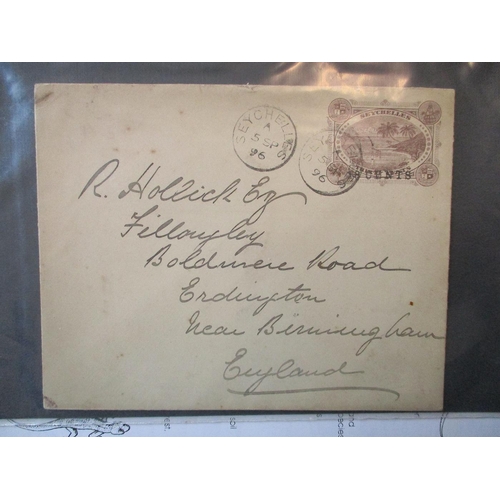 SEYCHELLES
A
5 SP
96
SEYCHELLES
CENTS
R. Hollick Esq
Fillongley
Boldmere Road
Erdington
Near Birmingham
England